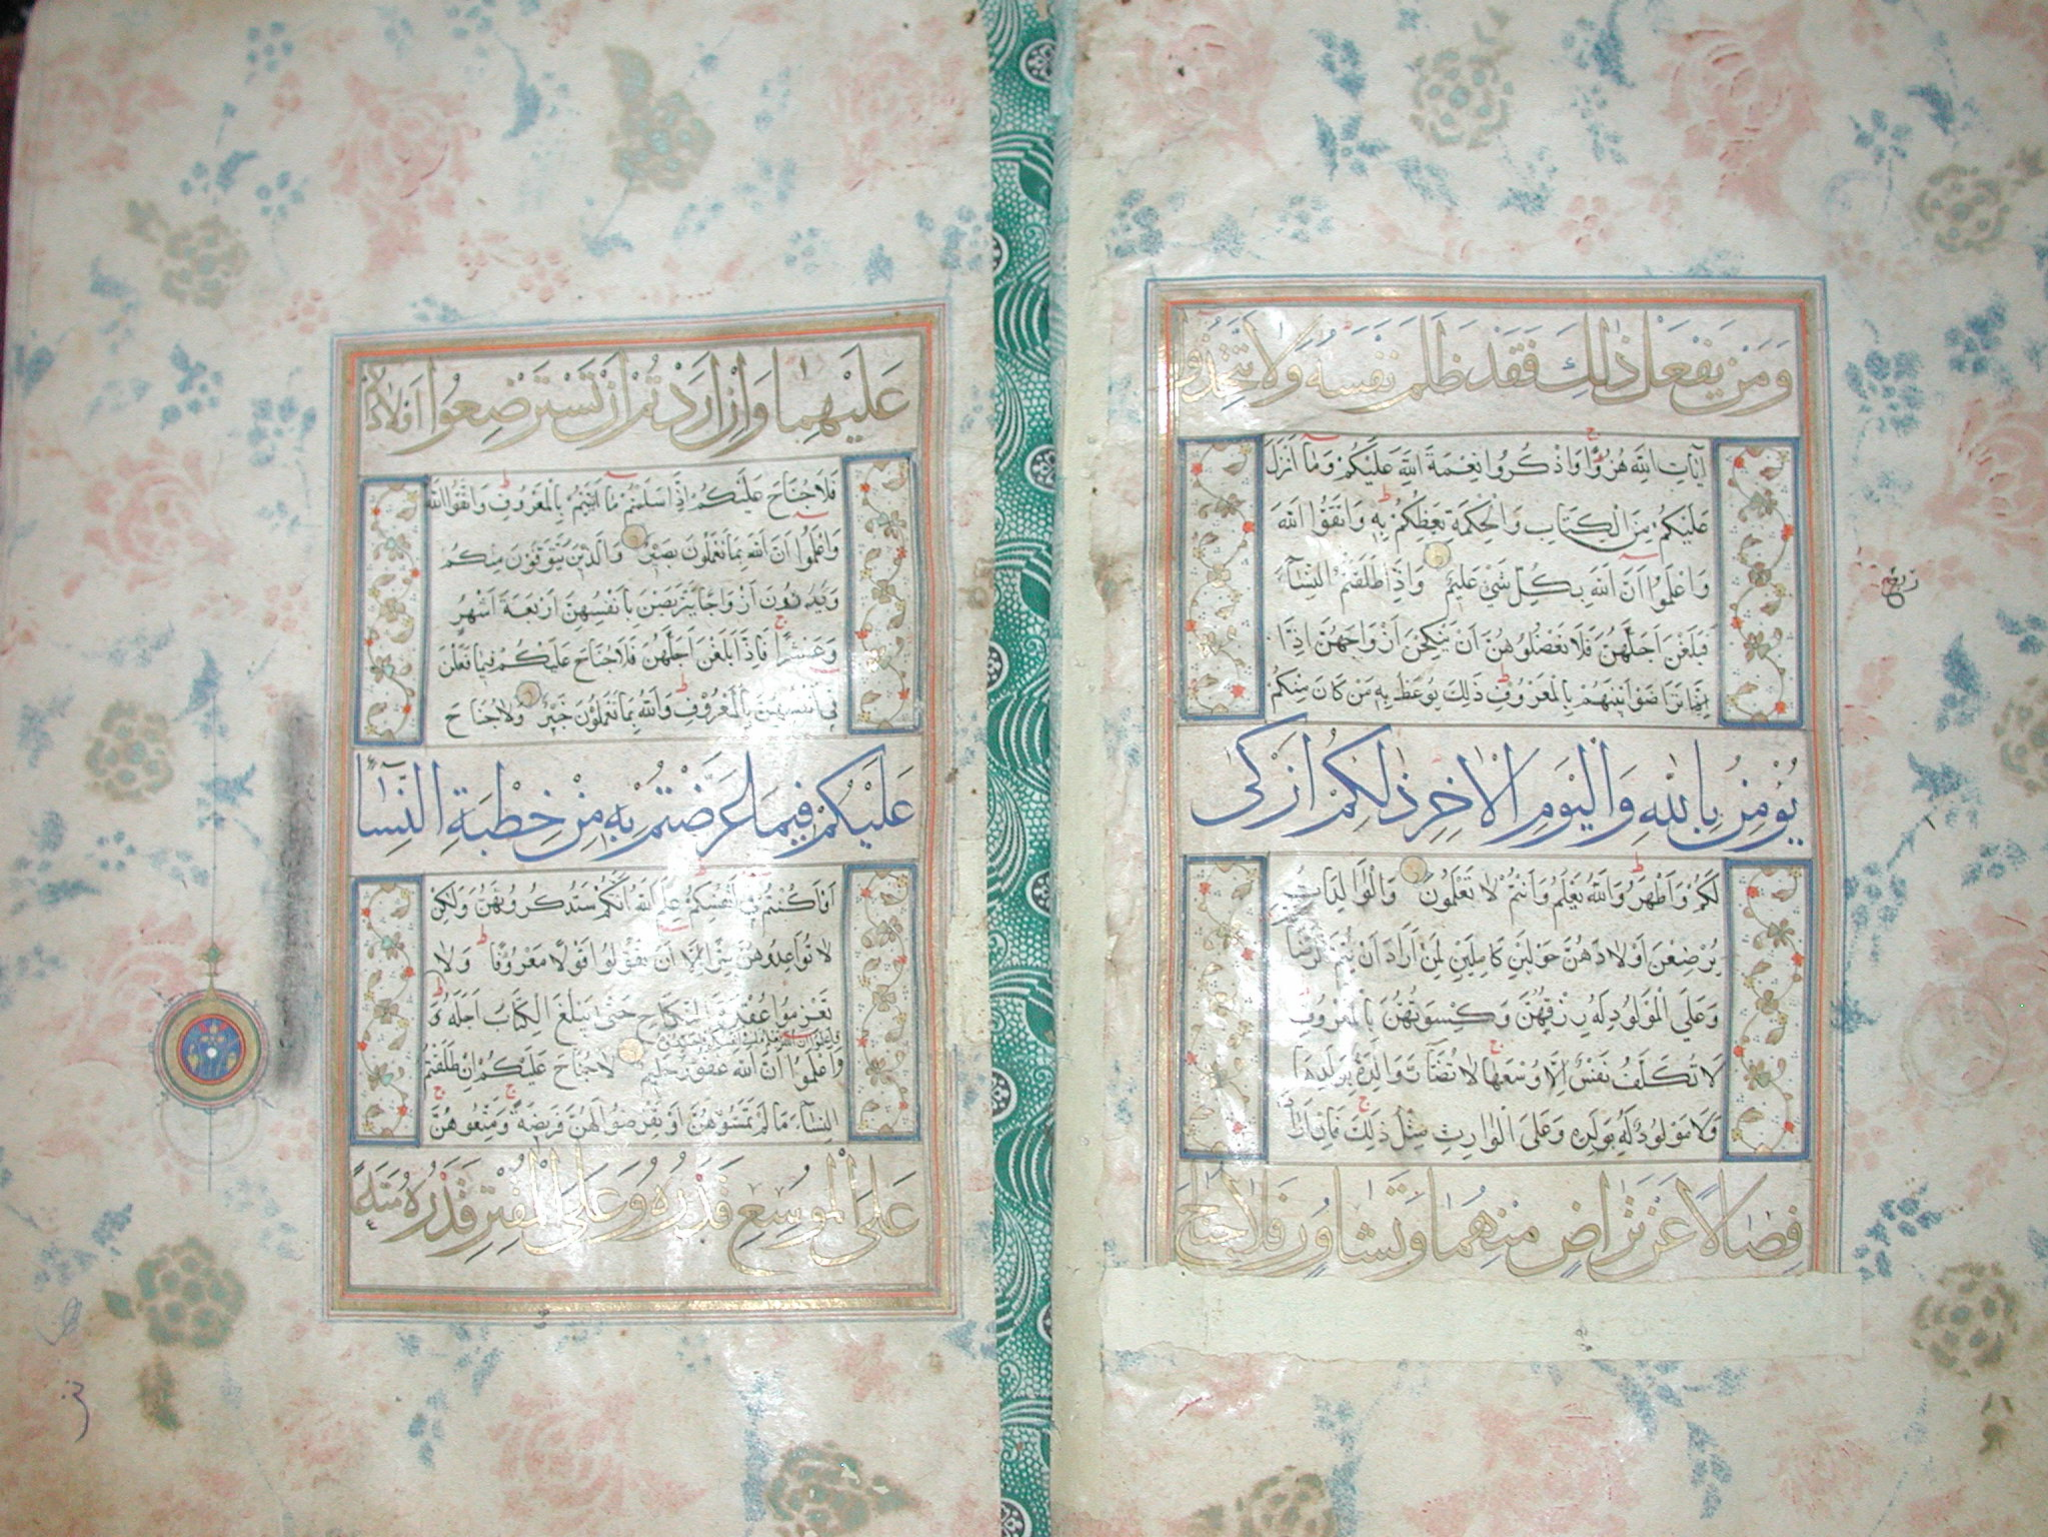 وَمَنْ يَفْعَلْ ذٰلِكَ فَقَدْ ظَلَمَ نَفْسَهُ وَلَا تَتَّخِذُوا
اٰيَاتِ اللّٰهِ هُزُوًا وَاذْكُرُوا نِعْمَةَ اللّٰهِ عَلَيْكُمْ وَمَا اَنْزَلَ
عَلَيْكُمْ مِنَ الْكِتَابِ وَالْحِكْمَةِ يَعِظُكُمْ بِهِ وَاتَّقُوا اللّٰهَ
وَاعْلَمُوا اَنَّ اللّٰهَ بِكُلِّ شَيْءٍ عَلِيمٌ وَاِذَا طَلَّقْتُمُ النِّسَاءَ
فَبَلَغْنَ اَجَلَهُنَّ فَلَا تَعْضُلُوهُنَّ اَنْ يَنْكِحْنَ اَزْوَاجَهُنَّ اِذَا
تَرَاضَوْا بَيْنَهُمْ بِالْمَعْرُوفِ ذٰلِكَ يُوعَظُ بِهِ مَنْ كَانَ مِنْكُمْ
يُؤْمِنُ بِاللّٰهِ وَالْيَوْمِ الْاٰخِرِ ذٰلِكُمْ اَزْكٰى
لَكُمْ وَاَطْهَرُ وَاللّٰهُ يَعْلَمُ وَاَنْتُمْ لَا تَعْلَمُونَ وَالْوَالِدَاتُ
يُرْضِعْنَ اَوْلَادَهُنَّ حَوْلَيْنِ كَامِلَيْنِ لِمَنْ اَرَادَ اَنْ يُتِمَّ الرَّضَا
وَعَلَى الْمَوْلُودِ لَهُ رِزْقُهُنَّ وَكِسْوَتُهُنَّ بِالْمَعْرُوفِ
لَا تُكَلَّفُ نَفْسٌ اِلَّا وُسْعَهَا لَا تُضَارَّ وَالِدَةٌ بِوَلَدِهَا
وَلَا مَوْلُودٌ لَهُ بِوَلَدِهِ وَعَلَى الْوَارِثِ مِثْلُ ذٰلِكَ فَاِنْ اَرَادَا
فِصَالًا عَنْ تَرَاضٍ مِنْهُمَا وَتَشَاوُرٍ فَلَا جُنَاحَ
ربع
عَلَيْهِمَا وَاِنْ اَرَدْتُمْ اَنْ تَسْتَرْضِعُوا اَوْلَادَكُمْ
فَلَا جُنَاحَ عَلَيْكُمْ اِذَا سَلَّمْتُمْ مَا اٰتَيْتُمْ بِالْمَعْرُوفِ وَاتَّقُوا اللّٰهَ
وَاعْلَمُوا اَنَّ اللّٰهَ بِمَا تَعْمَلُونَ بَصِيرٌ وَالَّذِينَ يُتَوَفَّوْنَ مِنْكُمْ
وَيَذَرُونَ اَزْوَاجًا يَتَرَبَّصْنَ بِاَنْفُسِهِنَّ اَرْبَعَةَ اَشْهُرٍ
وَعَشْرًا فَاِذَا بَلَغْنَ اَجَلَهُنَّ فَلَا جُنَاحَ عَلَيْكُمْ فِيمَا فَعَلْنَ
فِي اَنْفُسِهِنَّ بِالْمَعْرُوفِ وَاللّٰهُ بِمَا تَعْمَلُونَ خَبِيرٌ وَلَا جُنَاحَ
عَلَيْكُمْ فِيمَا عَرَّضْتُمْ بِهِ مِنْ خِطْبَةِ النِّسَاءِ
اَوْ اَكْنَنْتُمْ فِي اَنْفُسِكُمْ عَلِمَ اللّٰهُ اَنَّكُمْ سَتَذْكُرُونَهُنَّ وَلٰكِنْ
لَا تُوَاعِدُوهُنَّ سِرًّا اِلَّا اَنْ تَقُولُوا قَوْلًا مَعْرُوفًا وَلَا
تَعْزِمُوا عُقْدَةَ النِّكَاحِ حَتّٰى يَبْلُغَ الْكِتَابُ اَجَلَهُ وَ
وَاعْلَمُوا اَنَّ اللّٰهَ غَفُورٌ حَلِيمٌ لَا جُنَاحَ عَلَيْكُمْ اِنْ طَلَّقْتُمُ
النِّسَاءَ مَا لَمْ تَمَسُّوهُنَّ اَوْ تَفْرِضُوا لَهُنَّ فَرِيضَةً وَمَتِّعُوهُنَّ
عَلَى الْمُوسِعِ قَدَرُهُ وَعَلَى الْمُقْتِرِ قَدَرُهُ مَتَاعًا